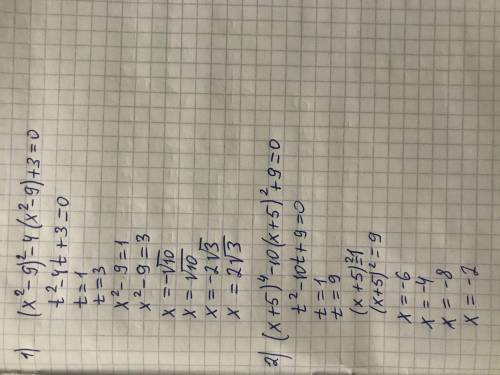 1) (x²-9)²-4(x²-9)+3=0
t²-4t+3=0
t=1
t=3
x²-9=1
x²-9=3
x=-√10
x=√10
x=-2√3
x=2√3
2) (x+5)⁴-10(x+5)²+9=0
t²-10t+9=0
t=1
t=9
(x+5)²=1
(x+5)²=9
x=-6
x=-4
x=-8
x=-2